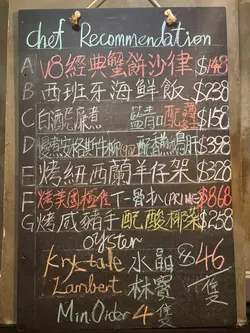 chef Recommendation
A V8經典蟹餅沙律 $148
B 西班牙海鮮飯 $238
C 白酒忌廉煮藍青口配薯 $158
D 慢煮安格斯牛柳配煎鴨肝 $398
E 烤紐西蘭羊仔架 $328
F 烤美國極佳T-骨扒(PRIME) $868
G 烤咸豬手配酸椰菜 $258
oyster
Krystale 水晶 $46
Lambert 林寶 一隻
Min.Order 4隻